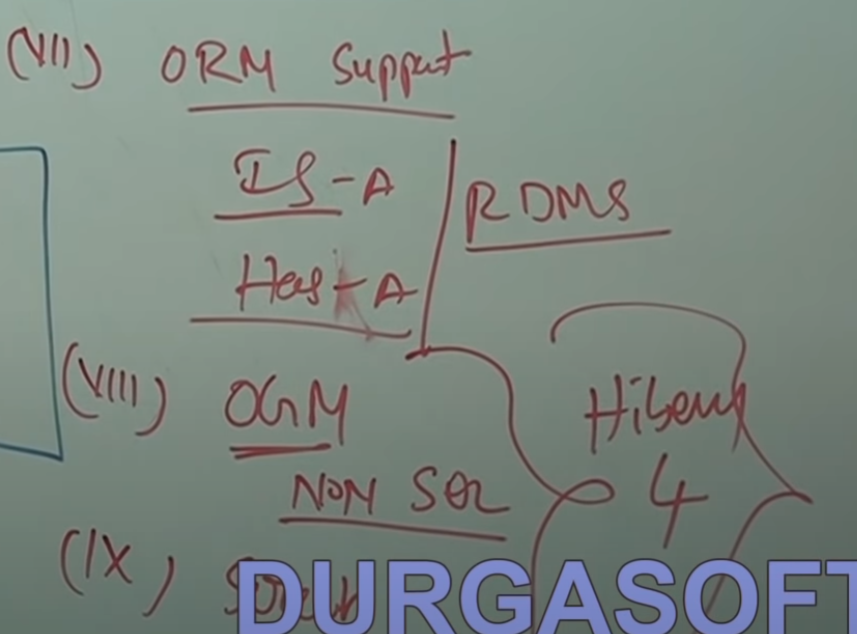 (VII) ORM Support
IS-A
RDMS
Has-A
(VIII) OGM
NON SQL
Hibern
4
(IX)
DURGASOFT